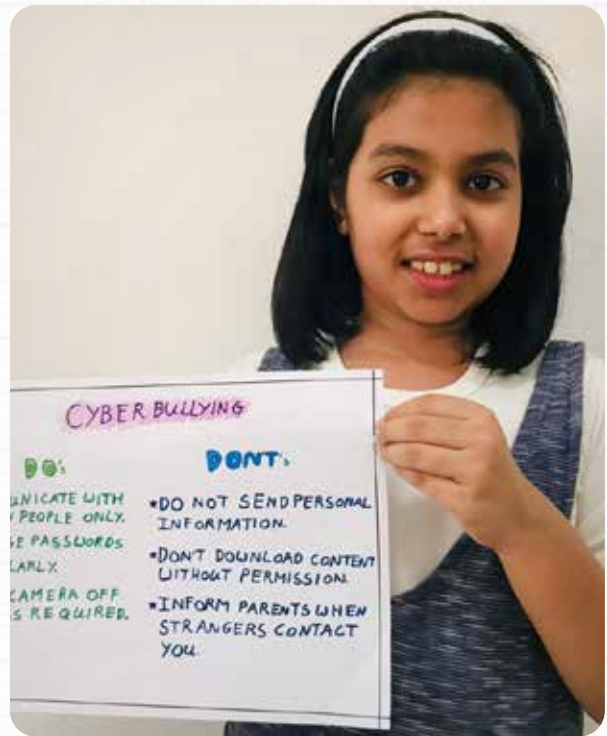 CYBER BULLYING
DO's
WITH
PEOPLE ONLY.
PASSWORDS
CAMERA OFF
REQUIRED.
DONT's
*DO NOT SEND PERSONAL
INFORMATION.
*DON'T DOWNLOAD CONTENT
WITHOUT PERMISSION.
*INFORM PARENTS WHEN
STRANGERS CONTACT
YOU.